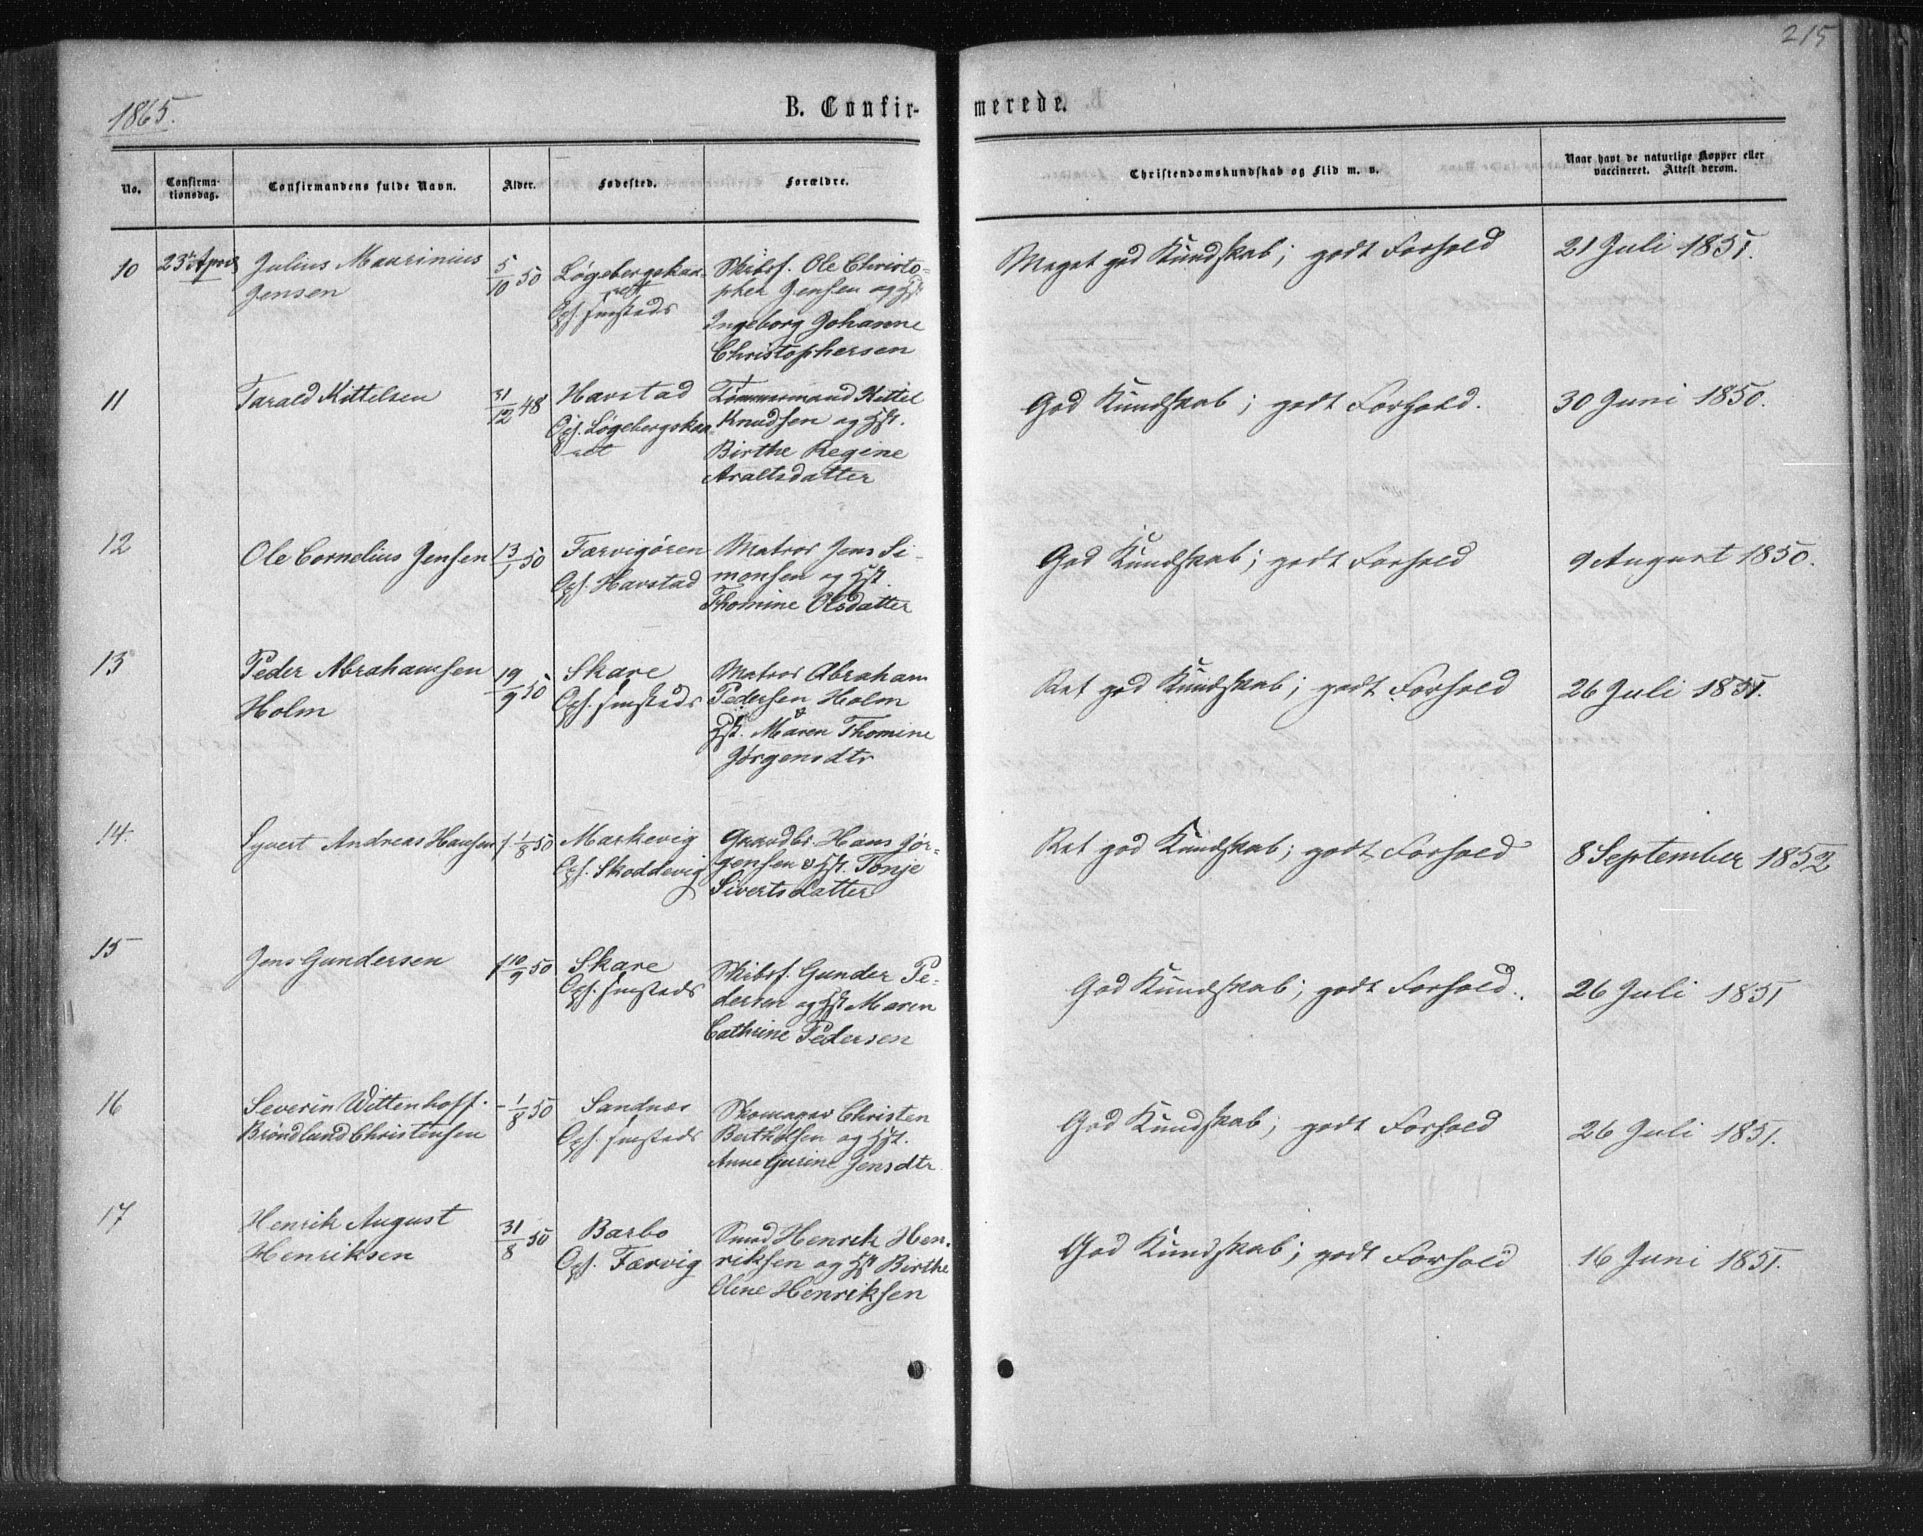 215
1865.
B. Confirmerede.
No.
Confirmationsdag.
Confirmandens fulde Navn.
Alder.
Fødested.
Forældre.
Christendomskundskab og Flid m. v.
Naar havt de naturlige Kopper eller vaccineret. Attest derom.
10
23de April
Julius Maurinius
Jensen
5/10 50
Løgebergskaa-
ret
Oph. smsteds
Skibsf. Ole Christo-
pher Jensen og Hst
Ingeborg Johanne
Christophersen
Meget god Kundskab; godt Forhold
21 Juli 1851.
11
Tarald Kittelsen
31/12 48
Havstad
Oph. Løgebergskaa-
ret
Tømmermand Kittel
Knudsen og Hst.
Birthe Regine
Araltsdatter
God Kundskab; godt Forhold.
30 Juni 1850.
12
Ole Cornelius Jensen
13/1 50
Tærvigøren
Oph. Havstad
Matros Jens Si-
monsen og Hst.
Thomine Olsdatter
God Kundskab; godt Forhold
9 August 1850.
13
Peder Abrahamsen
Holm
19/9 50
Skare
Oph. smsteds
Matros Abraham
Pedersen Holm
& Hst. Maren Thomine
Jørgensdtr
Ret god Kundskab; godt Forhold
26 Juli 1851.
14.
Syvert Andreas Hansen
1/8 50
Markevig
Oph. Skoddevig
Gaardbr. Hans Jør-
gensen & Hst. Tonje
Sivertsdatter
Ret god Kundskab; godt Forhold
8 September 1852
15
Jens Gundersen
10/9 50
Skare
Oph. smsteds
Skibsf. Gunder Pe-
dersen og Hst Maren
Cathrine Pedersen
God Kundskab; godt Forhold.
26 Juli 1851
16
Severin Wittenhoff
Brøndlund Christensen
1/8 50
Sandnæs
Oph. smsteds
Skomager Christen
Bertholsen og Hst.
Anne Gurine Jensdtr
God Kundskab; godt Forhold
26 Juli 1851.
17
Henrik August
Henriksen
31/8 50
Barbo
Oph. Tærvig
Smed Henrik Hen-
riksen og Hst Birthe
Oline Henriksen
God Kundskab; godt Forhold
16 Juni 1851.